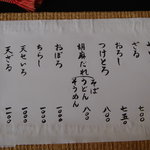 ざる 七〇〇
おろし 七五〇
つけとろ 八〇〇
胡麻だれ そば うどん そうめん 八〇〇
おぼろ 一〇〇〇
ちらし 一〇〇〇
天せいろ 一一〇〇
天ざる 一一〇〇